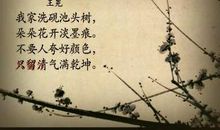 王冕
我家洗砚池头树，
朵朵花开淡墨痕。
不要人夸好颜色，
只留清气满乾坤。